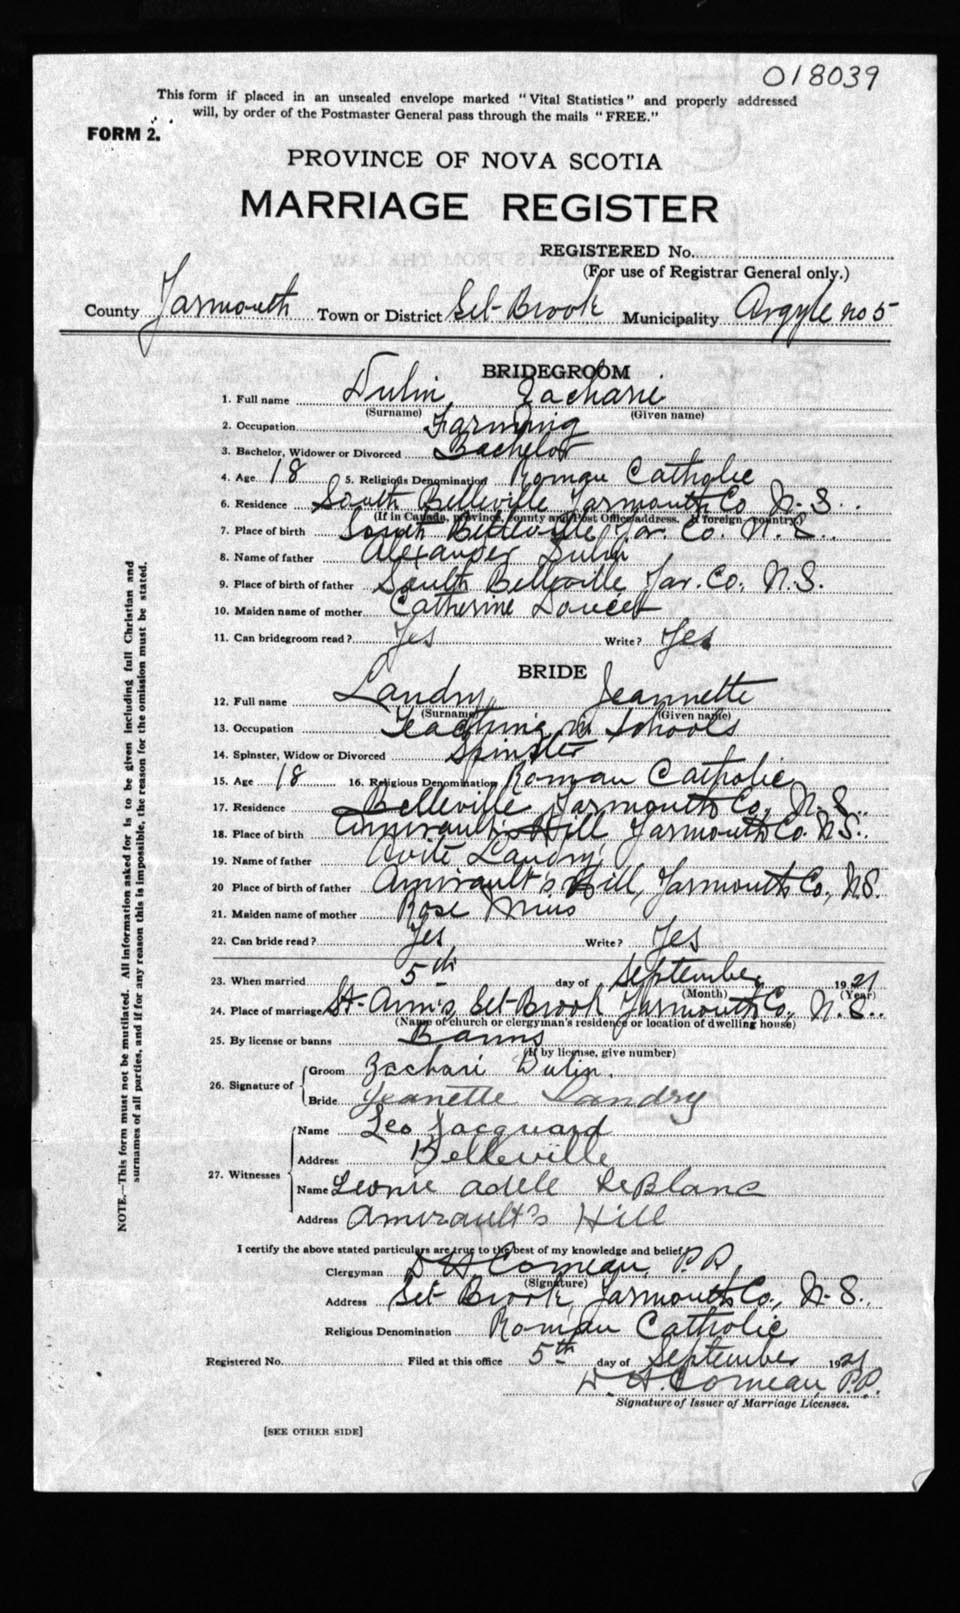 018039
This form if placed in an unsealed envelope marked "Vital Statistics" and properly addressed
will, by order of the Postmaster General pass through the mails "FREE."
FORM 2.
PROVINCE OF NOVA SCOTIA
MARRIAGE REGISTER
REGISTERED No.
(For use of Registrar General only.)
County Yarmouth Town or District Sel-Brook Municipality Argyle no 5
BRIDEGROOM
1. Full name Dulin Zacharie
(Surname) (Given name)
2. Occupation Farming
3. Bachelor, Widower or Divorced Bachelor
4. Age 18 5. Religious Denomination Roman Catholic
6. Residence South Belleville Yarmouth Co N.S.
(If in Canada, province, county and Post Office address. If foreign country.)
7. Place of birth South Belleville Yar. Co. N.S.
8. Name of father Alexander Dulin
9. Place of birth of father South Belleville Yar. Co. N.S.
10. Maiden name of mother Catherine Doucet
11. Can bridegroom read? Yes Write? Yes
BRIDE
12. Full name Landry Jeannette
(Surname) (Given name)
13. Occupation Teaching in Schools
14. Spinster, Widow or Divorced Spinster
15. Age 18 16. Religious Denomination Roman Catholic
17. Residence Belleville Yarmouth Co., N.S.
18. Place of birth Amirault's Hill Yarmouth Co. N.S.
19. Name of father Avite Landry
20 Place of birth of father Amirault's Hill, Yarmouth Co., N.S.
21. Maiden name of mother Rose Mius
22. Can bride read? Yes Write? Yes
23. When married 5th day of September 1921
(Month) (Year)
24. Place of marriage St-Ann's, Sel-Brook Yarmouth Co., N.S.
(Name of church or clergyman's residence or location of dwelling house)
25. By license or banns Banns
(If by license, give number)
26. Signature of Groom Zachari Dulin.
Bride Jeanette Landry
27. Witnesses Name Leo Jacquard
Address Belleville
Name Leonie Adele LeBlanc
Address Amirault's Hill
I certify the above stated particulars are true to the best of my knowledge and belief.
Clergyman D H Comeau, P.P.
(Signature)
Address Sel-Brook, Yarmouth Co., N.S.
Religious Denomination Roman Catholic
Registered No. Filed at this office 5th day of September 1921
D. H. Comeau, P.P.
Signature of Issuer of Marriage Licenses.
[SEE OTHER SIDE]
NOTE.—This form must not be mutilated. All information asked for is to be given including full Christian and
surnames of all parties, and if for any reason this is impossible, the reason for the omission must be stated.